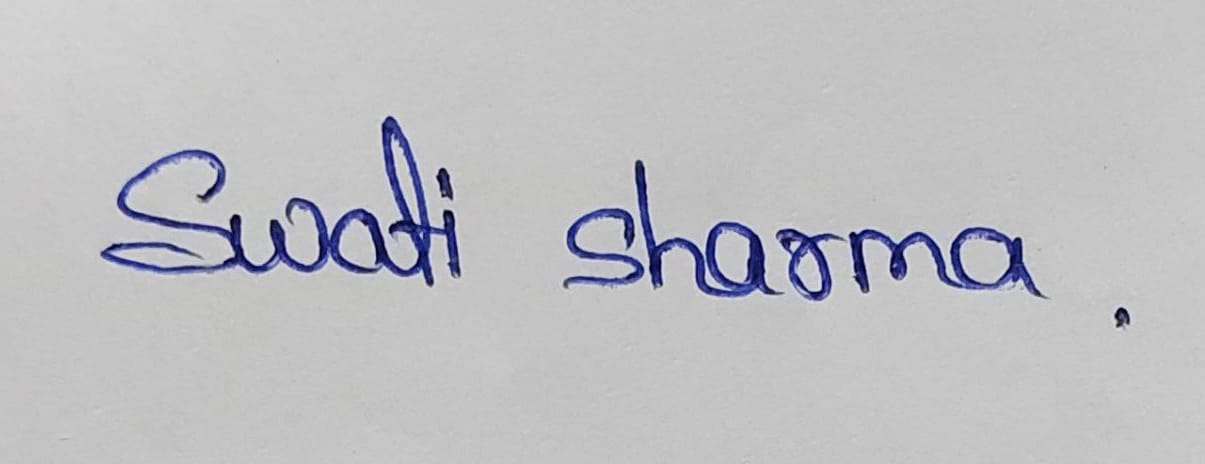 Swati sharma.